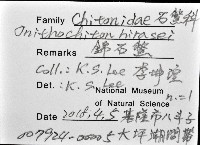 Family Chitonidae 石鱉科
Onithochiton hirasei
Remarks 錦石鱉
Coll.: K.S. Lee 李坤瑄
Det.: K.S. Lee
National Museum
of Natural Science n=1
Date 2018.4.5 基隆市八斗子
007924-00005 大坪潮間帶